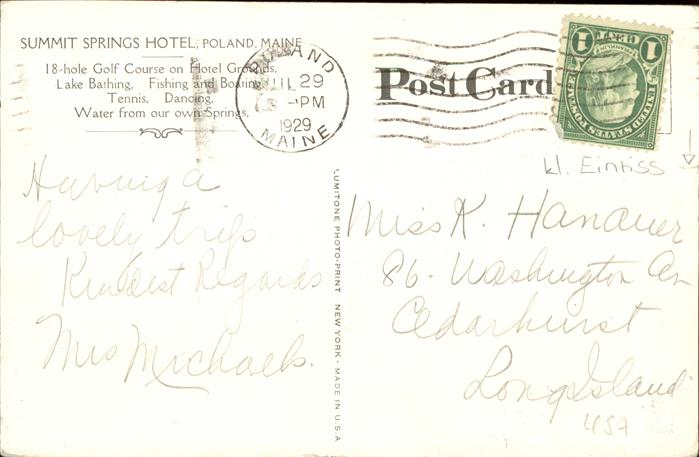 SUMMIT SPRINGS HOTEL, POLAND, MAINE
18-hole Golf Course on Hotel Grounds.
Lake Bathing. Fishing and Boating.
Tennis. Dancing.
Water from our own Springs.
POLAND
JUL 29
-PM
1929
MAINE
Post Card
1 CENT 1
UNITED STATES POSTAGE
kl. Einriss
Having a
lovely trip
Kindest Regards
Mrs Michaels.
LUMITONE PHOTO-PRINT NEW YORK - MADE IN U.S.A
Miss K. Hanauer
86- Washington Av
Cedarhurst
Long Island
USA